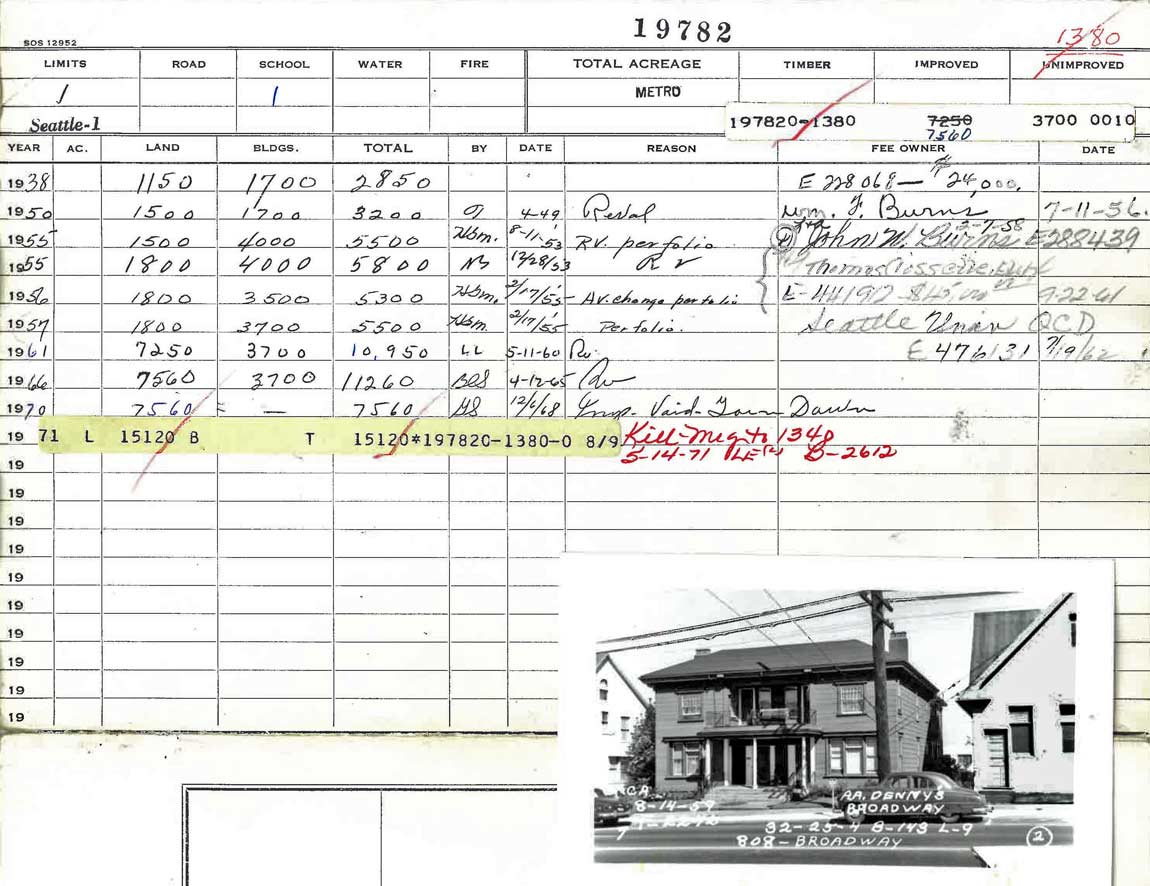 19782
SOS 12952
1380
LIMITS ROAD SCHOOL WATER FIRE TOTAL ACREAGE TIMBER IMPROVED UNIMPROVED
/ 1 METRO
Seattle-1
197820-1380 7250 3700 0010
7560
YEAR AC. LAND BLDGS. TOTAL BY DATE REASON FEE OWNER DATE
1938 1150 1700 2850 E 228068— $24,000.
1950 1500 1700 3200 4-49 Wm. F. Burns 7-11-56.
2-7-58
1955 1500 4000 5500 Hsm. 8-11-53 RV. perfolio John W. Burns E288439
1955 1800 4000 5800 12/28/53 RV Thomas
1956 1800 3500 5300 Hsm. 2/17/55 - Av. change perfolio E-441912 9-22-61
1957 1800 3700 5500 Hsm. 2/17/55 Perfolio. Seattle Univ QCD
1961 7250 3700 10,950 LL 5-11-60 Rv. E 476131 7/19/62
1966 7560 3700 11260 4-12-65 Rv
1970 7560 — 7560 12/6/68 Imp- Void- Torn Down
1971 L 15120 B T 15120*197820-1380-0 8/9 Kill-Mrg to 1340
5-14-71 B-2612
19
19
19
19
19
19
19
19
19
19
8-14-59
A.A. DENNY'S
BROADWAY
32-25-4 B-143 L-9
808-BROADWAY
2